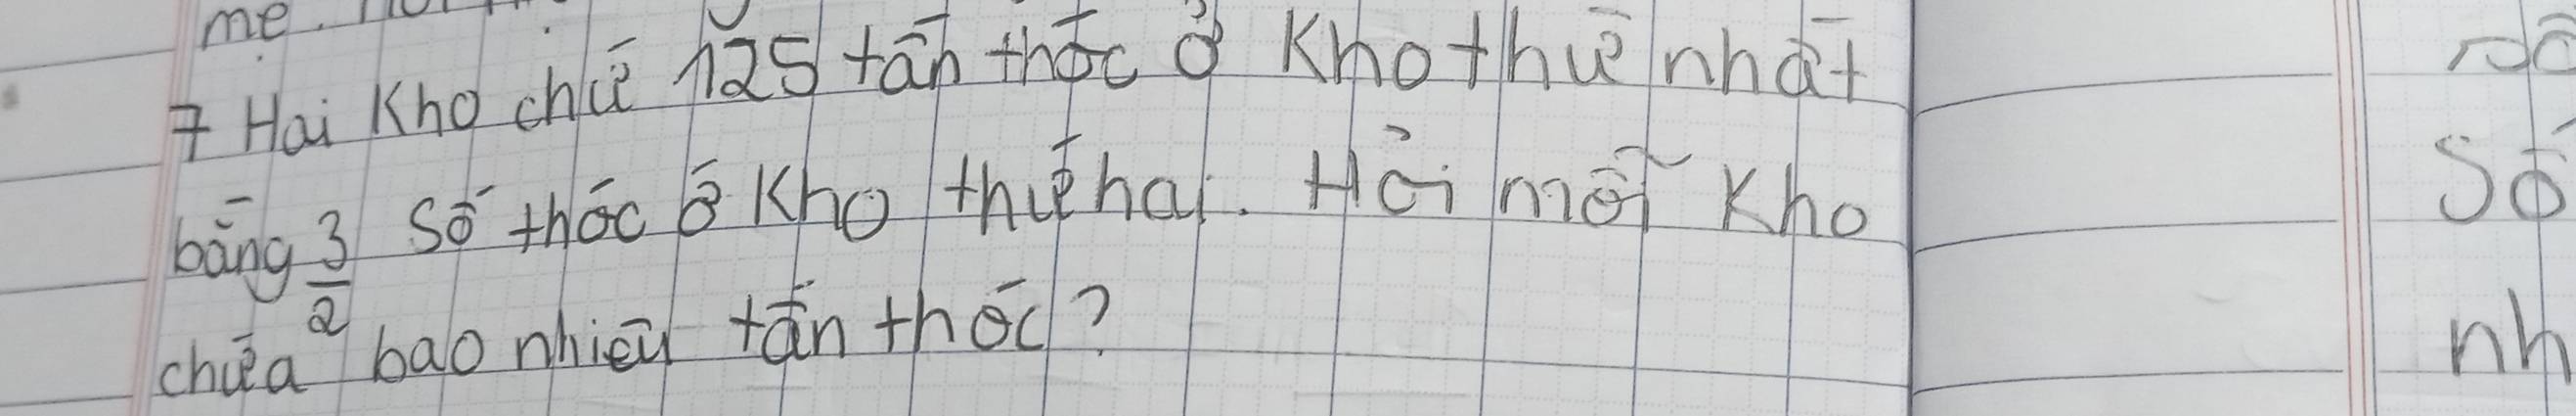 mẹ.
7 Hai kho chứ 125 tấn thóc ở kho thứ nhất
bằng 3/2 số thóc ở kho thứ hai. Hỏi mỗi kho
chứa bao nhiêu tấn thóc?
Số
nh